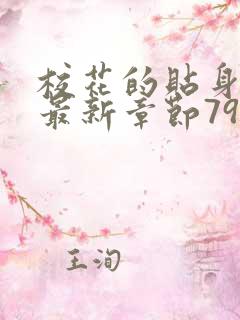 校花的貼身
最新章節79
王洵